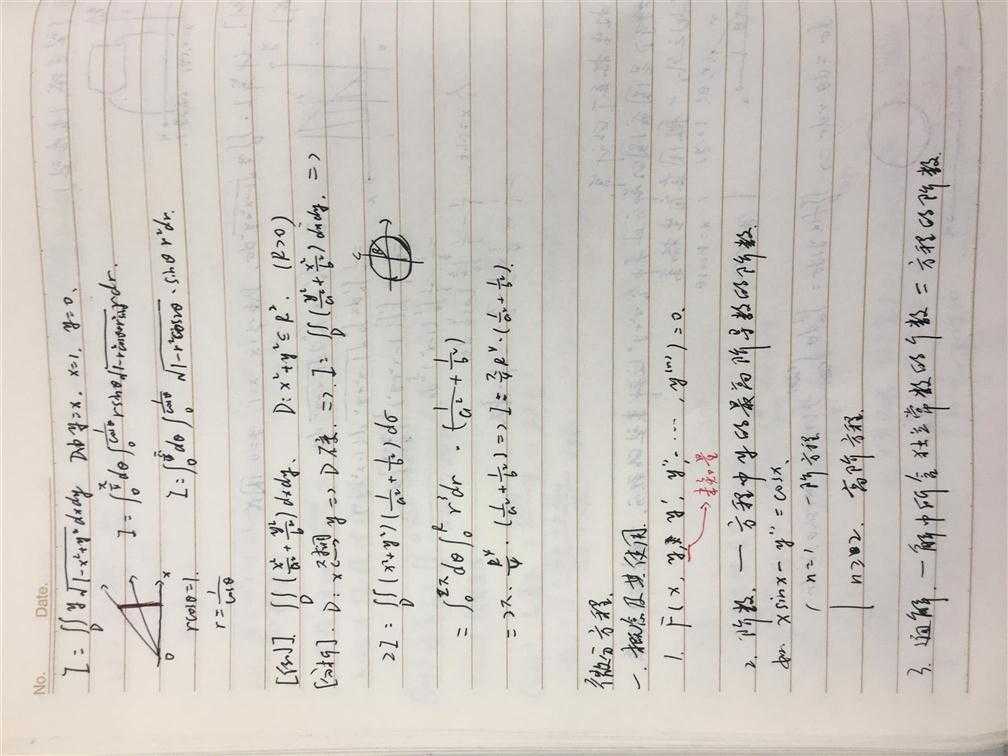 No.
Date.
I = ∬_D y√(1-x²+y²) dxdy  D由 y=x, x=1, y=0、
I = ∫₀^{π/4} dθ ∫₀^{1/cosθ} r sinθ
rcosθ=1.
r = 1/cosθ
I = ∫₀^{π/4} dθ ∫₀^{1/cosθ} √(1-r²cos2θ) · sinθ r² dr.
[例]. ∬_D (x²/a² + y²/b²) dxdy.  D: x²+y² ≤ R². (R>0)
[分析]. D: x ⟷对调 y => D不变. => I = ∬_D (y²/a² + x²/b²) dxdy. =>
2I = ∬_D (x²+y²)(1/a² + 1/b²) dσ
= ∫₀^{2π} dθ ∫₀^R r³ dr · (1/a² + 1/b²)
= 2π · R⁴/4 · (1/a² + 1/b²) => I = π/4 R⁴ · (1/a² + 1/b²).
微分方程.
一. 概念及其使用.
1. F(x, y, y', y'' ..., y⁽ⁿ⁾) = 0.
2. 阶数. — 方程中y的最高阶导数的阶数.
xsinx - y'' = cosx.
n=1, 一阶方程
n≥2 高阶方程.
3. 通解. — 解中所含独立常数的个数 = 方程的阶数.